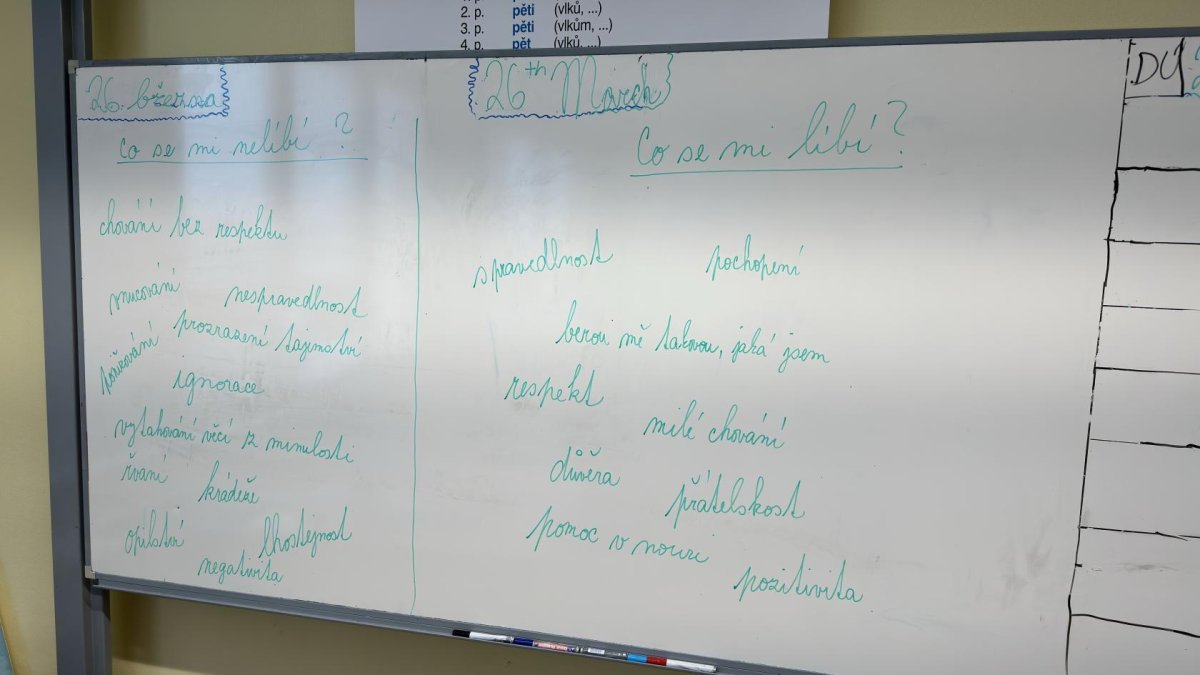 2. p. pěti (vlků, ...)
3. p. pěti (vlkům, ...)
4. p. pět (vlků, ...)
26. března
Co se mi nelíbí?
chování bez respektu
nespravedlnost
prozrazení tajmství
ignorace
vytahování věcí z minulosti
řvaní
krádeže
opilství
lhostejnost
negativita
26th March
Co se mi líbí?
spravedlnost
pochopení
berou mě takovou, jaká jsem
respekt
milé chování
důvěra
přátelskost
pomoc v nouzi
pozitivita
DÚ